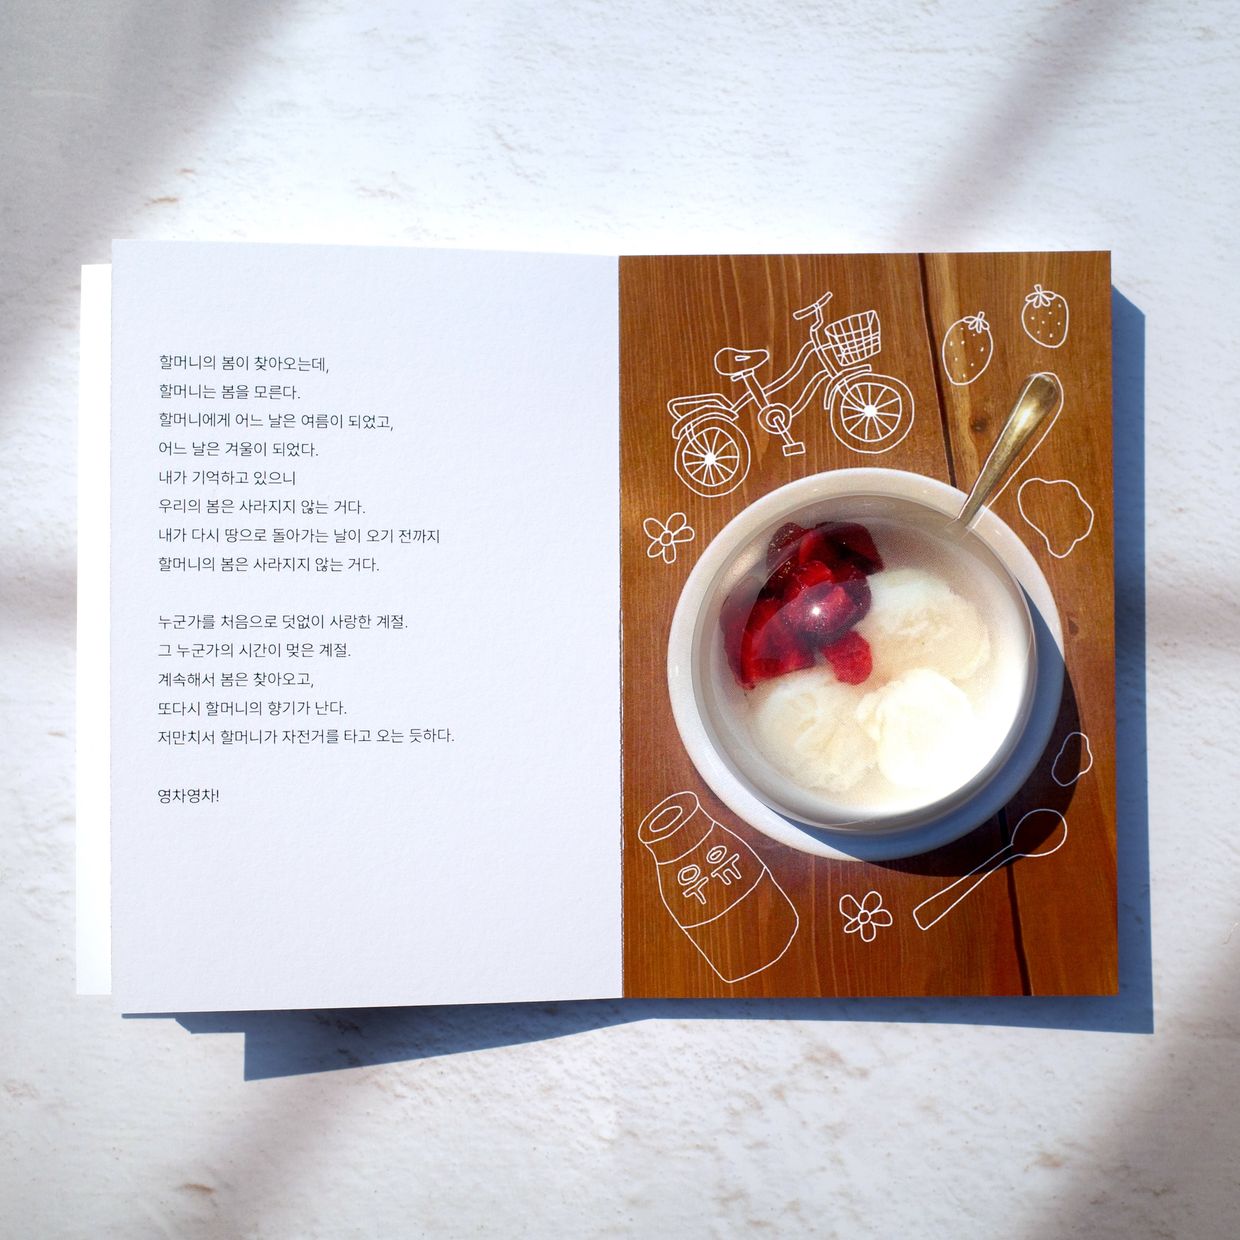 할머니의 봄이 찾아오는데,
할머니는 봄을 모른다.
할머니에게 어느 날은 여름이 되었고,
어느 날은 겨울이 되었다.
내가 기억하고 있으니
우리의 봄은 사라지지 않는 거다.
내가 다시 땅으로 돌아가는 날이 오기 전까지
할머니의 봄은 사라지지 않는 거다.
누군가를 처음으로 덧없이 사랑한 계절.
그 누군가의 시간이 멎은 계절.
계속해서 봄은 찾아오고,
또다시 할머니의 향기가 난다.
저만치서 할머니가 자전거를 타고 오는 듯하다.
영차영차!
우유